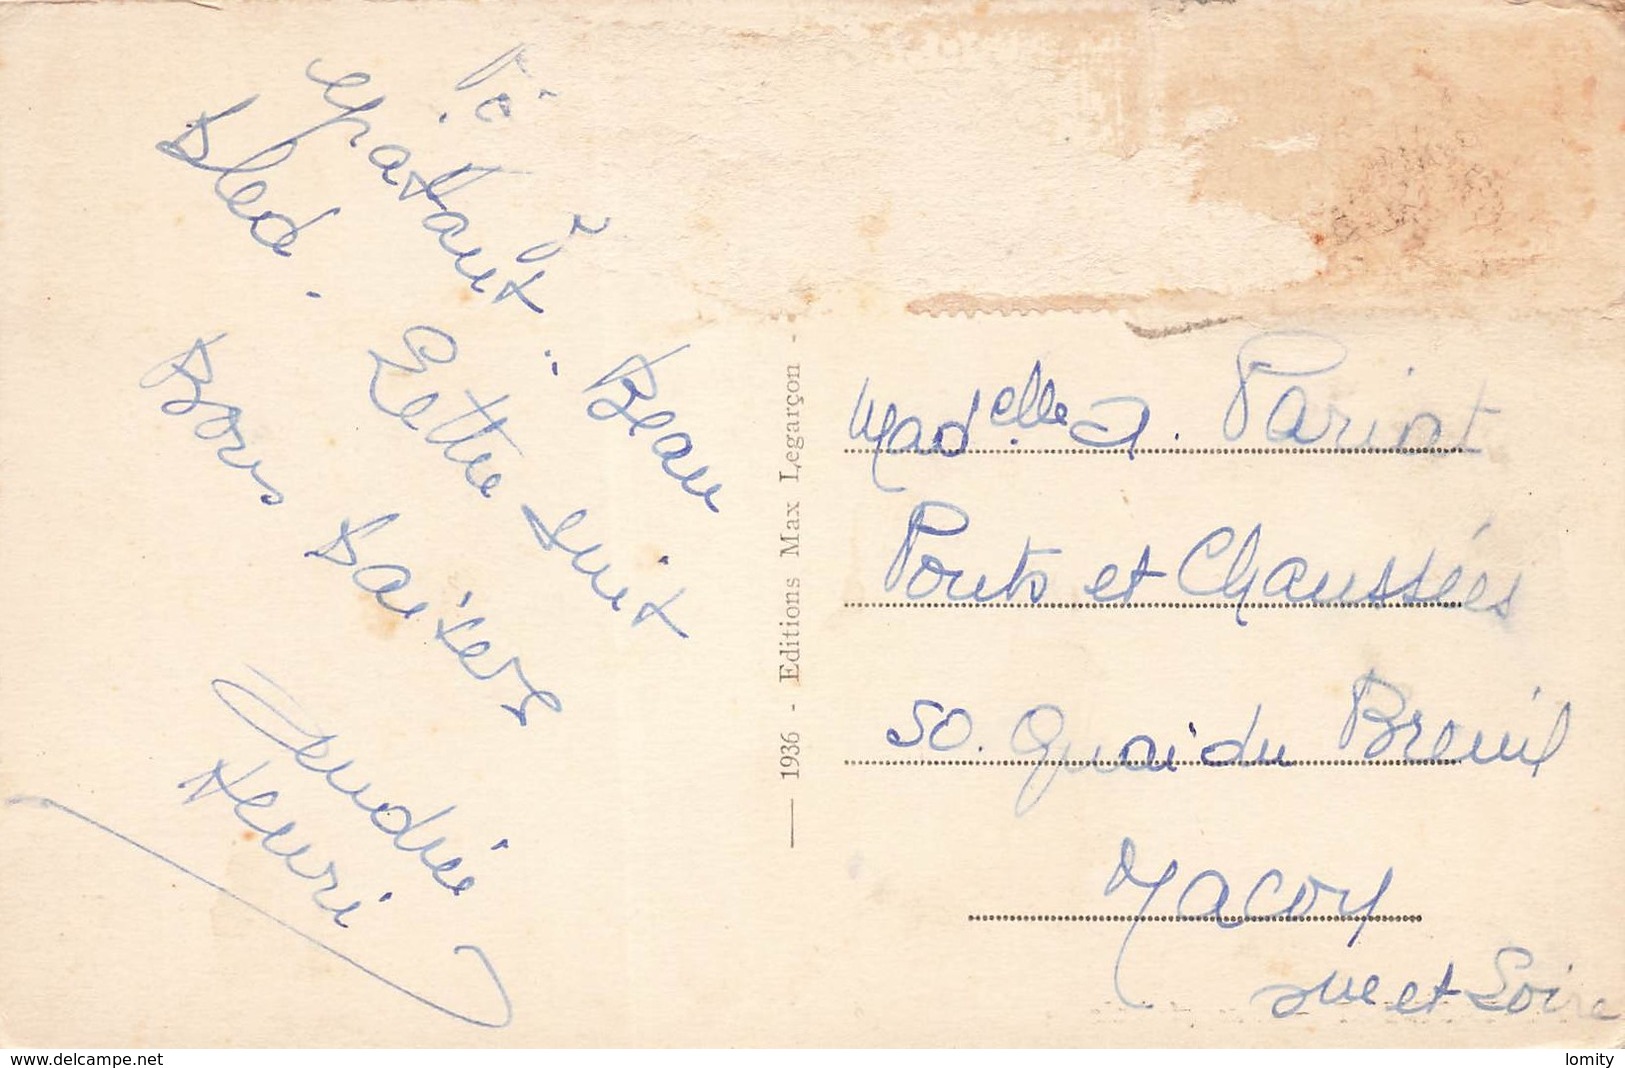 épatant. Beau
Bled. Lettre suit
Bons baisers
Andrée
Henri
1936 - Editions Max Legarçon -
Madelle A. Pariat
Ponts et Chaussées
50. Quai du Breuil
Macon
Sne et Loire
www.delcampe.net
lomity